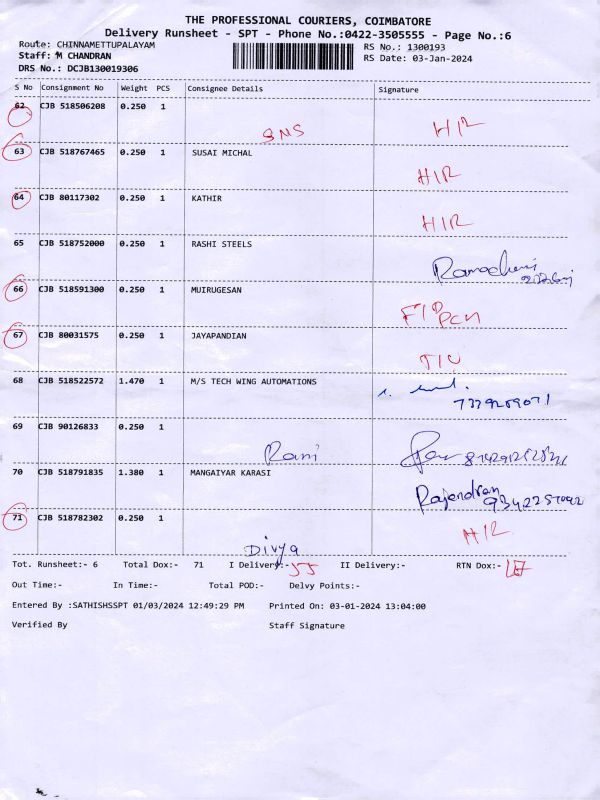 THE PROFESSIONAL COURIERS, COIMBATORE
Delivery Runsheet - SPT - Phone No.:0422-3505555 - Page No.:6
Route: CHINNAMETTUPALAYAM RS No.: 1300193
Staff: M CHANDRAN RS Date: 03-Jan-2024
DRS No.: DCJB130019306
S No Consignment No Weight PCS Consignee Details Signature
62 CJB 518506208 0.250 1
SNS HIR
63 CJB 518767465 0.250 1 SUSAI MICHAL
HIR
64 CJB 80117302 0.250 1 KATHIR
HIR
65 CJB 518752000 0.250 1 RASHI STEELS
66 CJB 518591300 0.250 1 MUIRUGESAN
67 CJB 80031575 0.250 1 JAYAPANDIAN
68 CJB 518522572 1.470 1 M/S TECH WING AUTOMATIONS
69 CJB 90126833 0.250 1
Rani
70 CJB 518791835 1.380 1 MANGAIYAR KARASI
Rajendran
71 CJB 518782302 0.250 1
HIR
Divya
Tot. Runsheet:- 6 Total Dox:- 71 I Delivery:- 55 II Delivery:- RTN Dox:-
Out Time:- In Time:- Total POD:- Delvy Points:-
Entered By :SATHISHSSPT 01/03/2024 12:49:29 PM Printed On: 03-01-2024 13:04:00
Verified By Staff Signature